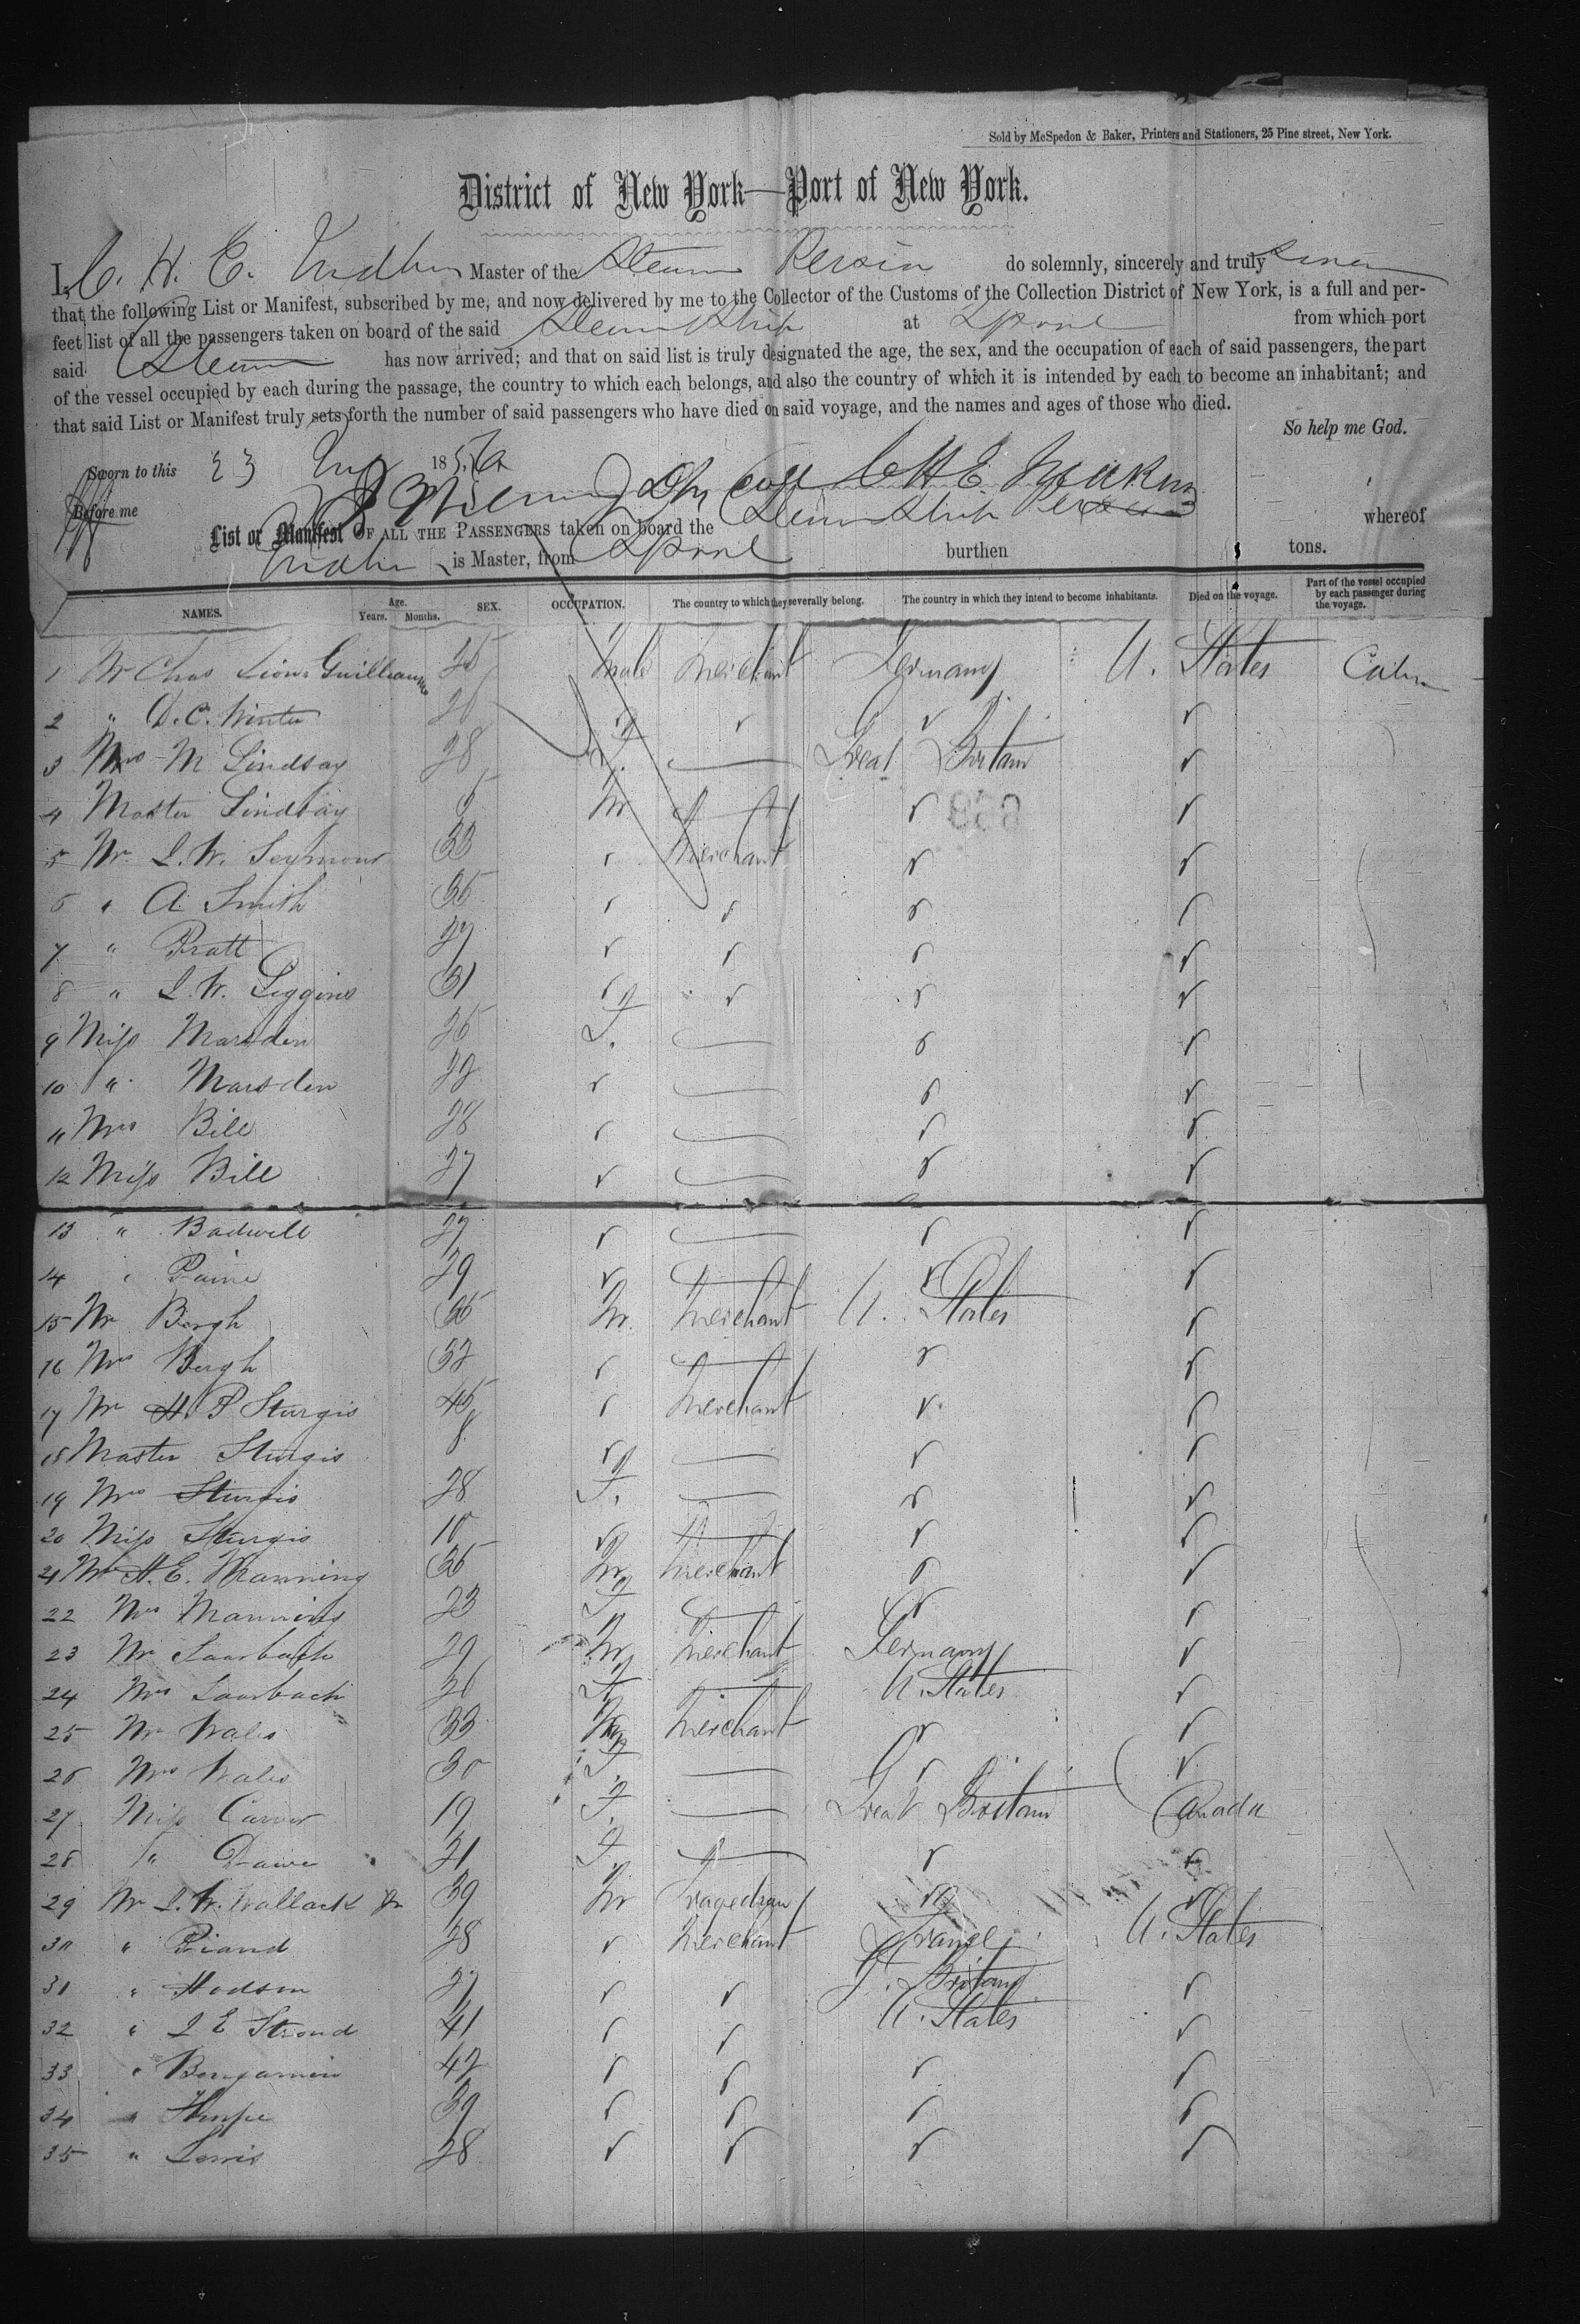 Sold by McSpedon & Baker, Printers and Stationers, 25 Pine street, New York.
District of New York—Port of New York.
I, C. H. E. Judkins Master of the Steam Persia do solemnly, sincerely and truly swear
that the following List or Manifest, subscribed by me, and now delivered by me to the Collector of the Customs of the Collection District of New York, is a full and per-
fect list of all the passengers taken on board of the said Steam Ship at Lpool from which port
said Steam has now arrived; and that on said list is truly designated the age, the sex, and the occupation of each of said passengers, the part
of the vessel occupied by each during the passage, the country to which each belongs, and also the country of which it is intended by each to become an inhabitant; and
that said List or Manifest truly sets forth the number of said passengers who have died on said voyage, and the names and ages of those who died.
So help me God.
Sworn to this 23 1856 C H E Judkins
Before me
List or Manifest OF ALL THE PASSENGERS taken on board the Steam Ship Persia whereof
Judkins is Master, from Lpool burthen tons.
NAMES. Age. Years. Months. SEX. OCCUPATION. The country to which they severally belong. The country in which they intend to become inhabitants. Died on the voyage. Part of the vessel occupied by each passenger during the voyage.
1 Mr Chas Guilliaume Male Merchant Germany U. States Cabin
2 " D. C. Winter 26 ✓ ✓ ✓
3 Mrs M Lindsay 28 F. — Great Britain ✓
4 Master Lindsay M — ✓ ✓
5 Mr L. W. Seymour 33 ✓ Merchant ✓ ✓
6 " A Smith 35 ✓ ✓ ✓ ✓
7 " Pratt 27 ✓ ✓ ✓ ✓
8 " L. W. Liggins 31 ✓ ✓ ✓ ✓
9 Miss Marsden 25 F. — ✓ ✓
10 " Marsden 22 ✓ — ✓ ✓
11 Mrs Bill 28 ✓ — ✓ ✓
12 Miss Bill 27 ✓ — ✓ ✓
13 " Badwell 27 ✓ — ✓ ✓
14 " Paine 29 ✓ — ✓ ✓
15 Mr Bergh 35 M. Merchant U. States ✓
16 Mrs Bergh 32 ✓ — ✓ ✓
17 Mr H. P Sturgis 45 ✓ Merchant ✓ ✓
18 Master Sturgis 8 ✓ — ✓ ✓
19 Mrs Sturgis 28 F. — ✓ ✓
20 Miss Sturgis 10 ✓ — ✓ ✓
21 Mr H. E. Manning 35 M Merchant ✓ ✓
22 Mrs Manning 23 F — ✓ ✓
23 Mr Saarbach 29 M Merchant Germany ✓
24 Mrs Saarbach 26 F — U. States ✓
25 Mr Wales 33 M Merchant ✓ ✓
26 Mrs Wales 30 F — ✓ ✓
27 Miss Carver 19 F. — Great Britain Canada
28 " Dawe 21 F — ✓ ✓
29 Mr J. W. Wallack Jr 39 M Tragedian ✓ ✓
30 " Piand 28 ✓ Merchant France U. States
31 " Hodson 27 ✓ ✓ G. Britain ✓
32 " J E Stroud 41 ✓ ✓ U. States ✓
33 " Benjamin 42 ✓ ✓ ✓ ✓
34 " 39 ✓ ✓ ✓ ✓
35 " Lewis 28 ✓ ✓ ✓ ✓